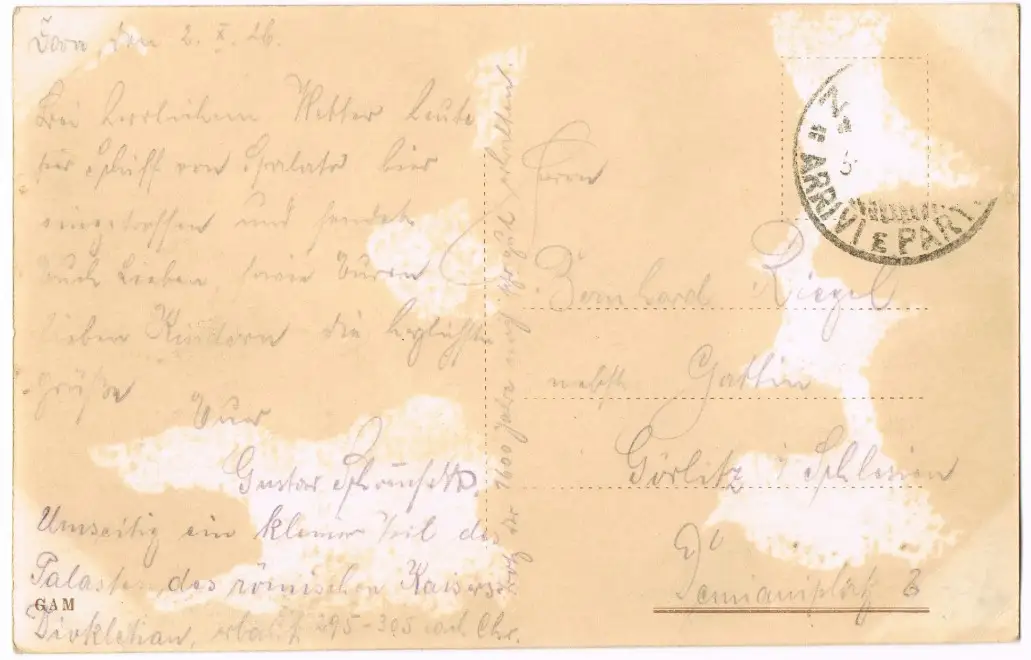 den 2. X. 26.
Bei herrlichem Wetter heute
per Schiff von Spalato hier
eingetroffen und sendet
Euch Lieben, sowie Euren
lieben Kindern die herzlichsten
Grüße
Euer
Gustav
Umseitig ein kleiner Teil des
Palastes des römischen Kaisers
Diokletian, erbaut 295-305 nach Chr.
trotz der 1600 Jahre noch sehr gut erhalten.
GAM
Herrn
Bernhard Riegel
nebst Gattin
Görlitz i/Schlesien
Demianiplatz
"ARRIVI E PART